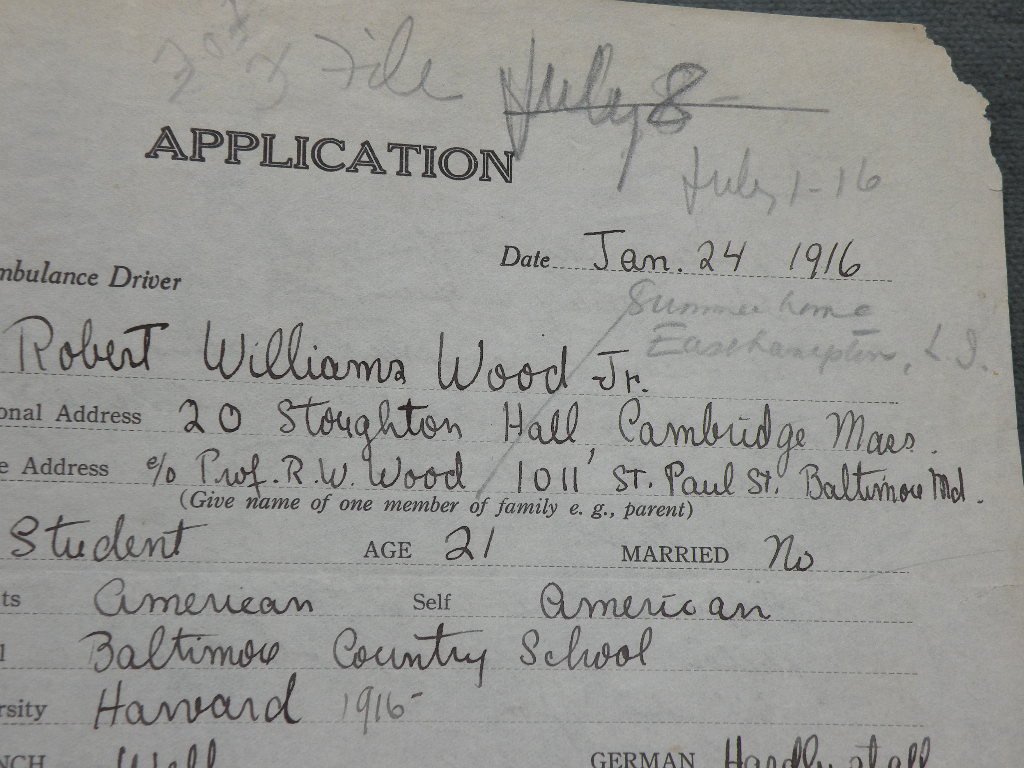 File July 8
APPLICATION
July 1-16
Date Jan. 24 1916
mbulance Driver
Summer home
Easthampton, L.I.
Robert Williams Wood Jr.
onal Address 20 Stoughton Hall, Cambridge Mass.
e Address c/o Prof. R. W. Wood 1011 St. Paul St. Baltimore Md.
(Give name of one member of family e. g., parent)
Student AGE 21 MARRIED No
ts American Self American
l Baltimore Country School
rsity Harvard 1916-
NCH Well GERMAN Hardly at all